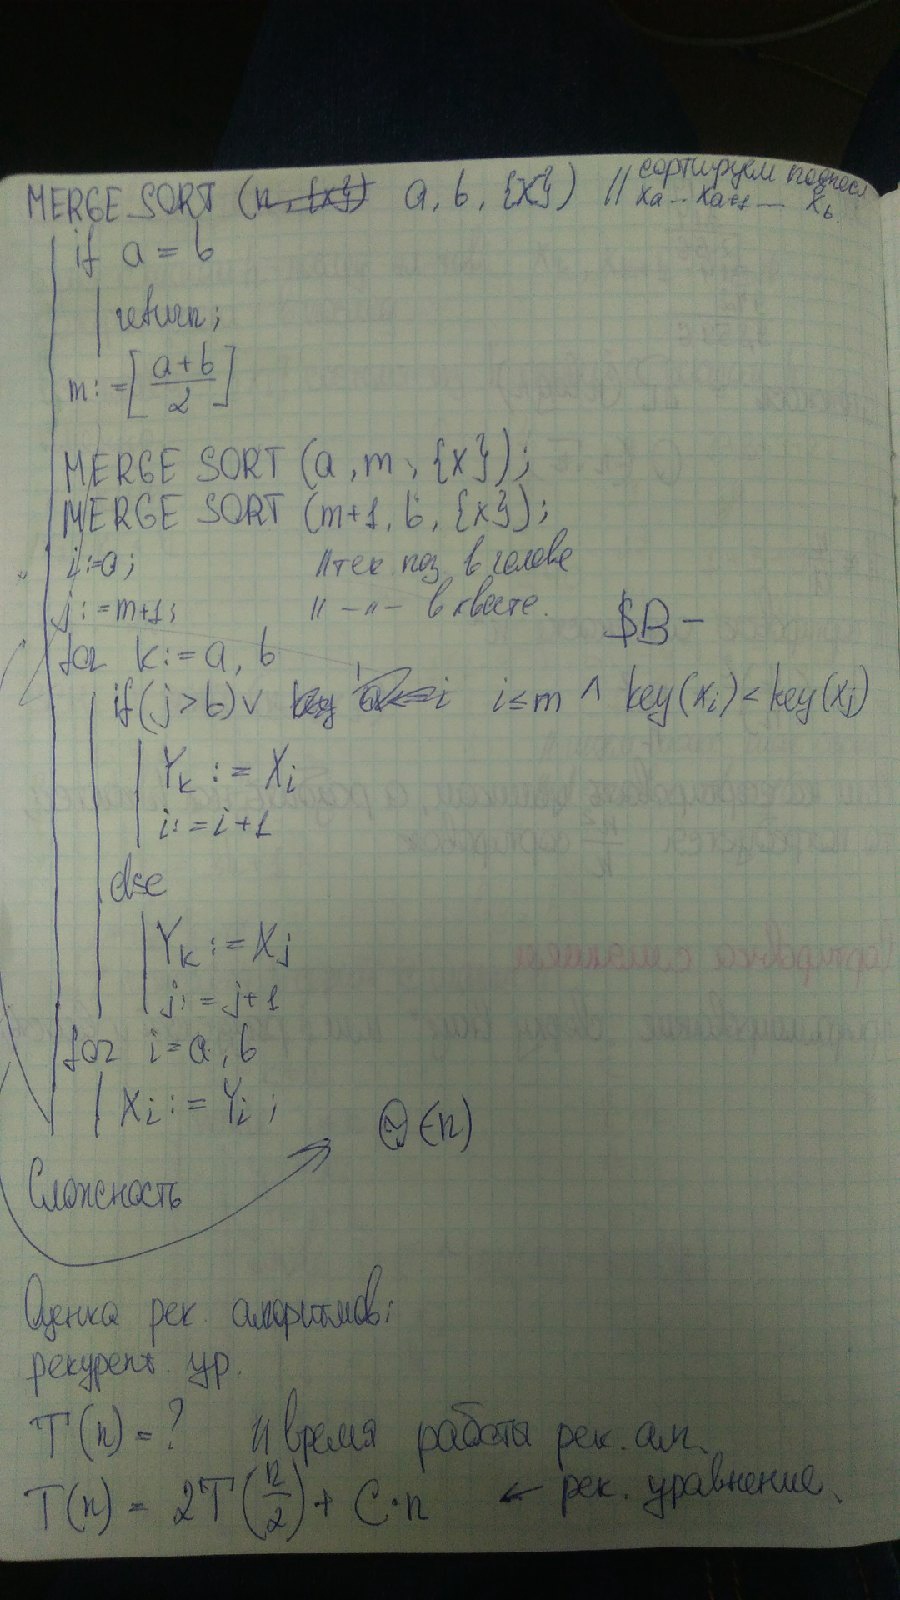 MERGE SORT (n, {x}) a, b, {X}) // сортируем
Xa - Xa+1 — Xb
if a = b
return;
m := [(a+b)/2]
MERGE SORT (a, m, {x});
MERGE SORT (m+1, b, {x});
i:=a; // тек. поз. в голове
j:=m+1; // —"— в хвосте.
$B-
for k:= a, b
if (j > b) ∨ i ≤ m ∧ key(xi) < key(xj)
Yk := Xi
i:=i+1
else
Yk := Xj
j:=j+1
for i=a, b
Xi := Yi;
Θ(n)
Сложность
Оценка рек. алгоритмов:
рекурент. ур.
T(n) = ? // время работы рек. алг.
T(n) = 2T(n/2) + C·n ← рек. уравнение.